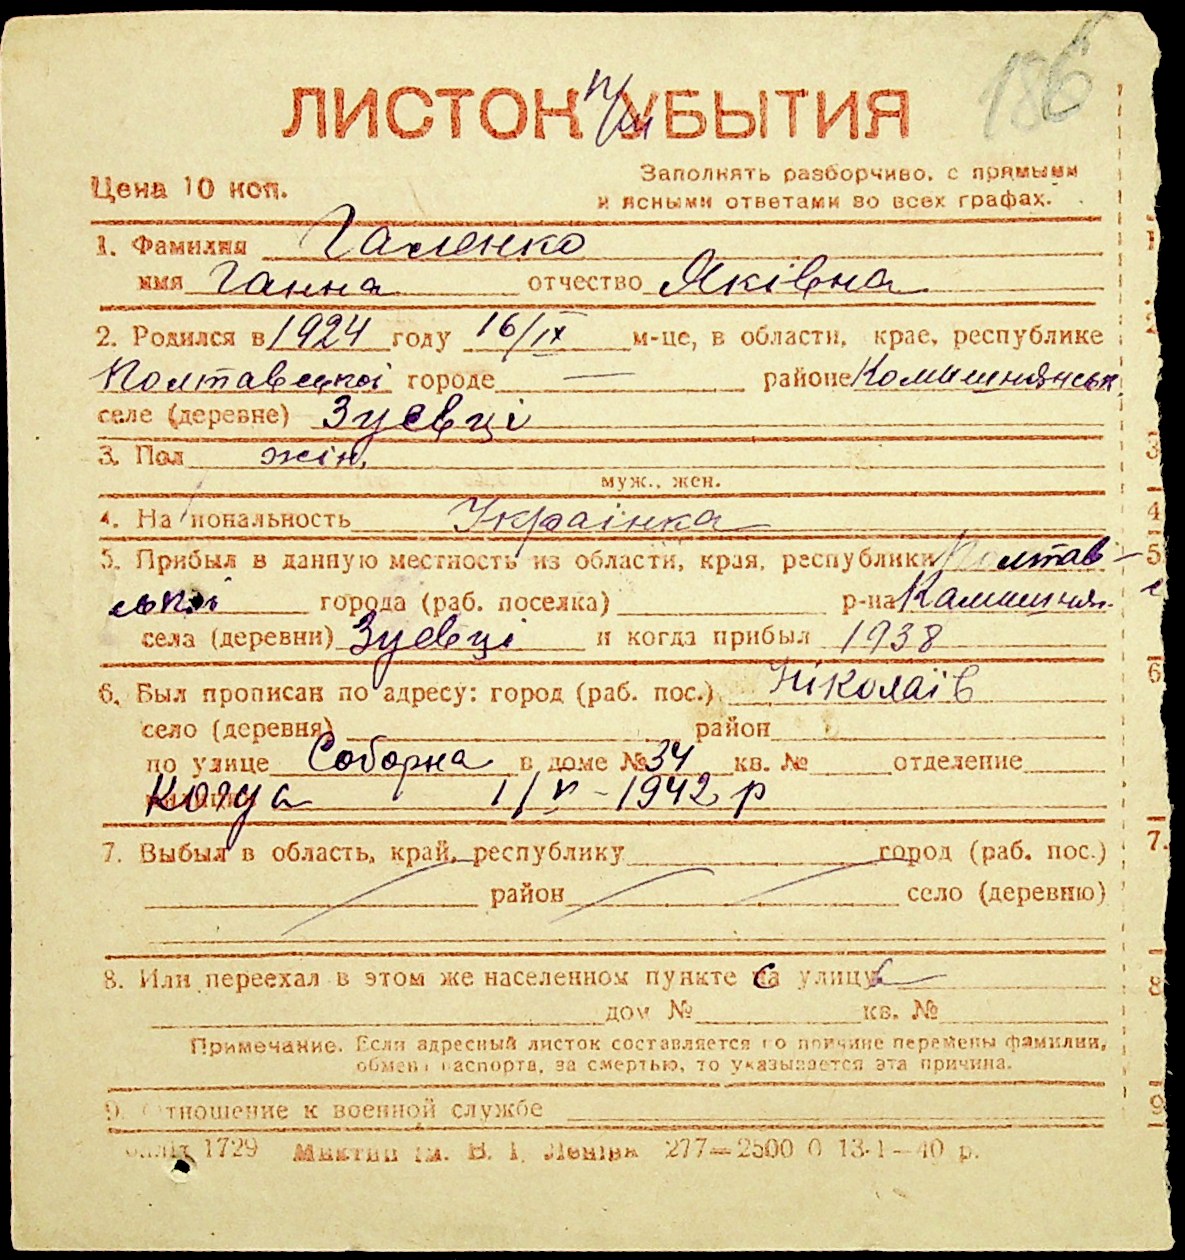 186
ЛИСТОК УБЫТИЯ
Цена 10 коп.
Заполнять разборчиво, с прямыми
и ясными ответами во всех графах.
1. Фамилия Галенко
имя Ганна отчество Яківна
2. Родился в 1924 году 16/IX м-це, в области, крае, республике
Полтавської городе — районе Комишнянськ
селе (деревне) Зуєвці
3. Пол жін.
муж., жен.
4. Национальность Українка
5. Прибыл в данную местность из области, края, республики Полтав-
ської города (раб. поселка) р-на Камишнян.
села (деревни) Зуєвці и когда прибыл 1938
6. Был прописан по адресу: город (раб. пос.) Ніколаїв
село (деревня) район
по улице Соборна в доме № 34 кв. № отделение
Когда 1/VI - 1942 р
7. Выбыл в область, край, республику город (раб. пос.)
район село (деревню)
8. Или переехал в этом же населенном пункте на улицу
дом № кв. №
Примечание. Если адресный листок составляется по причине перемены фамилии,
обмена паспорта, за смертью, то указывается эта причина.
9. Отношение к военной службе
1729 Миктип ім. В. І. Леніна 277—2500 0 13-1—40 р.